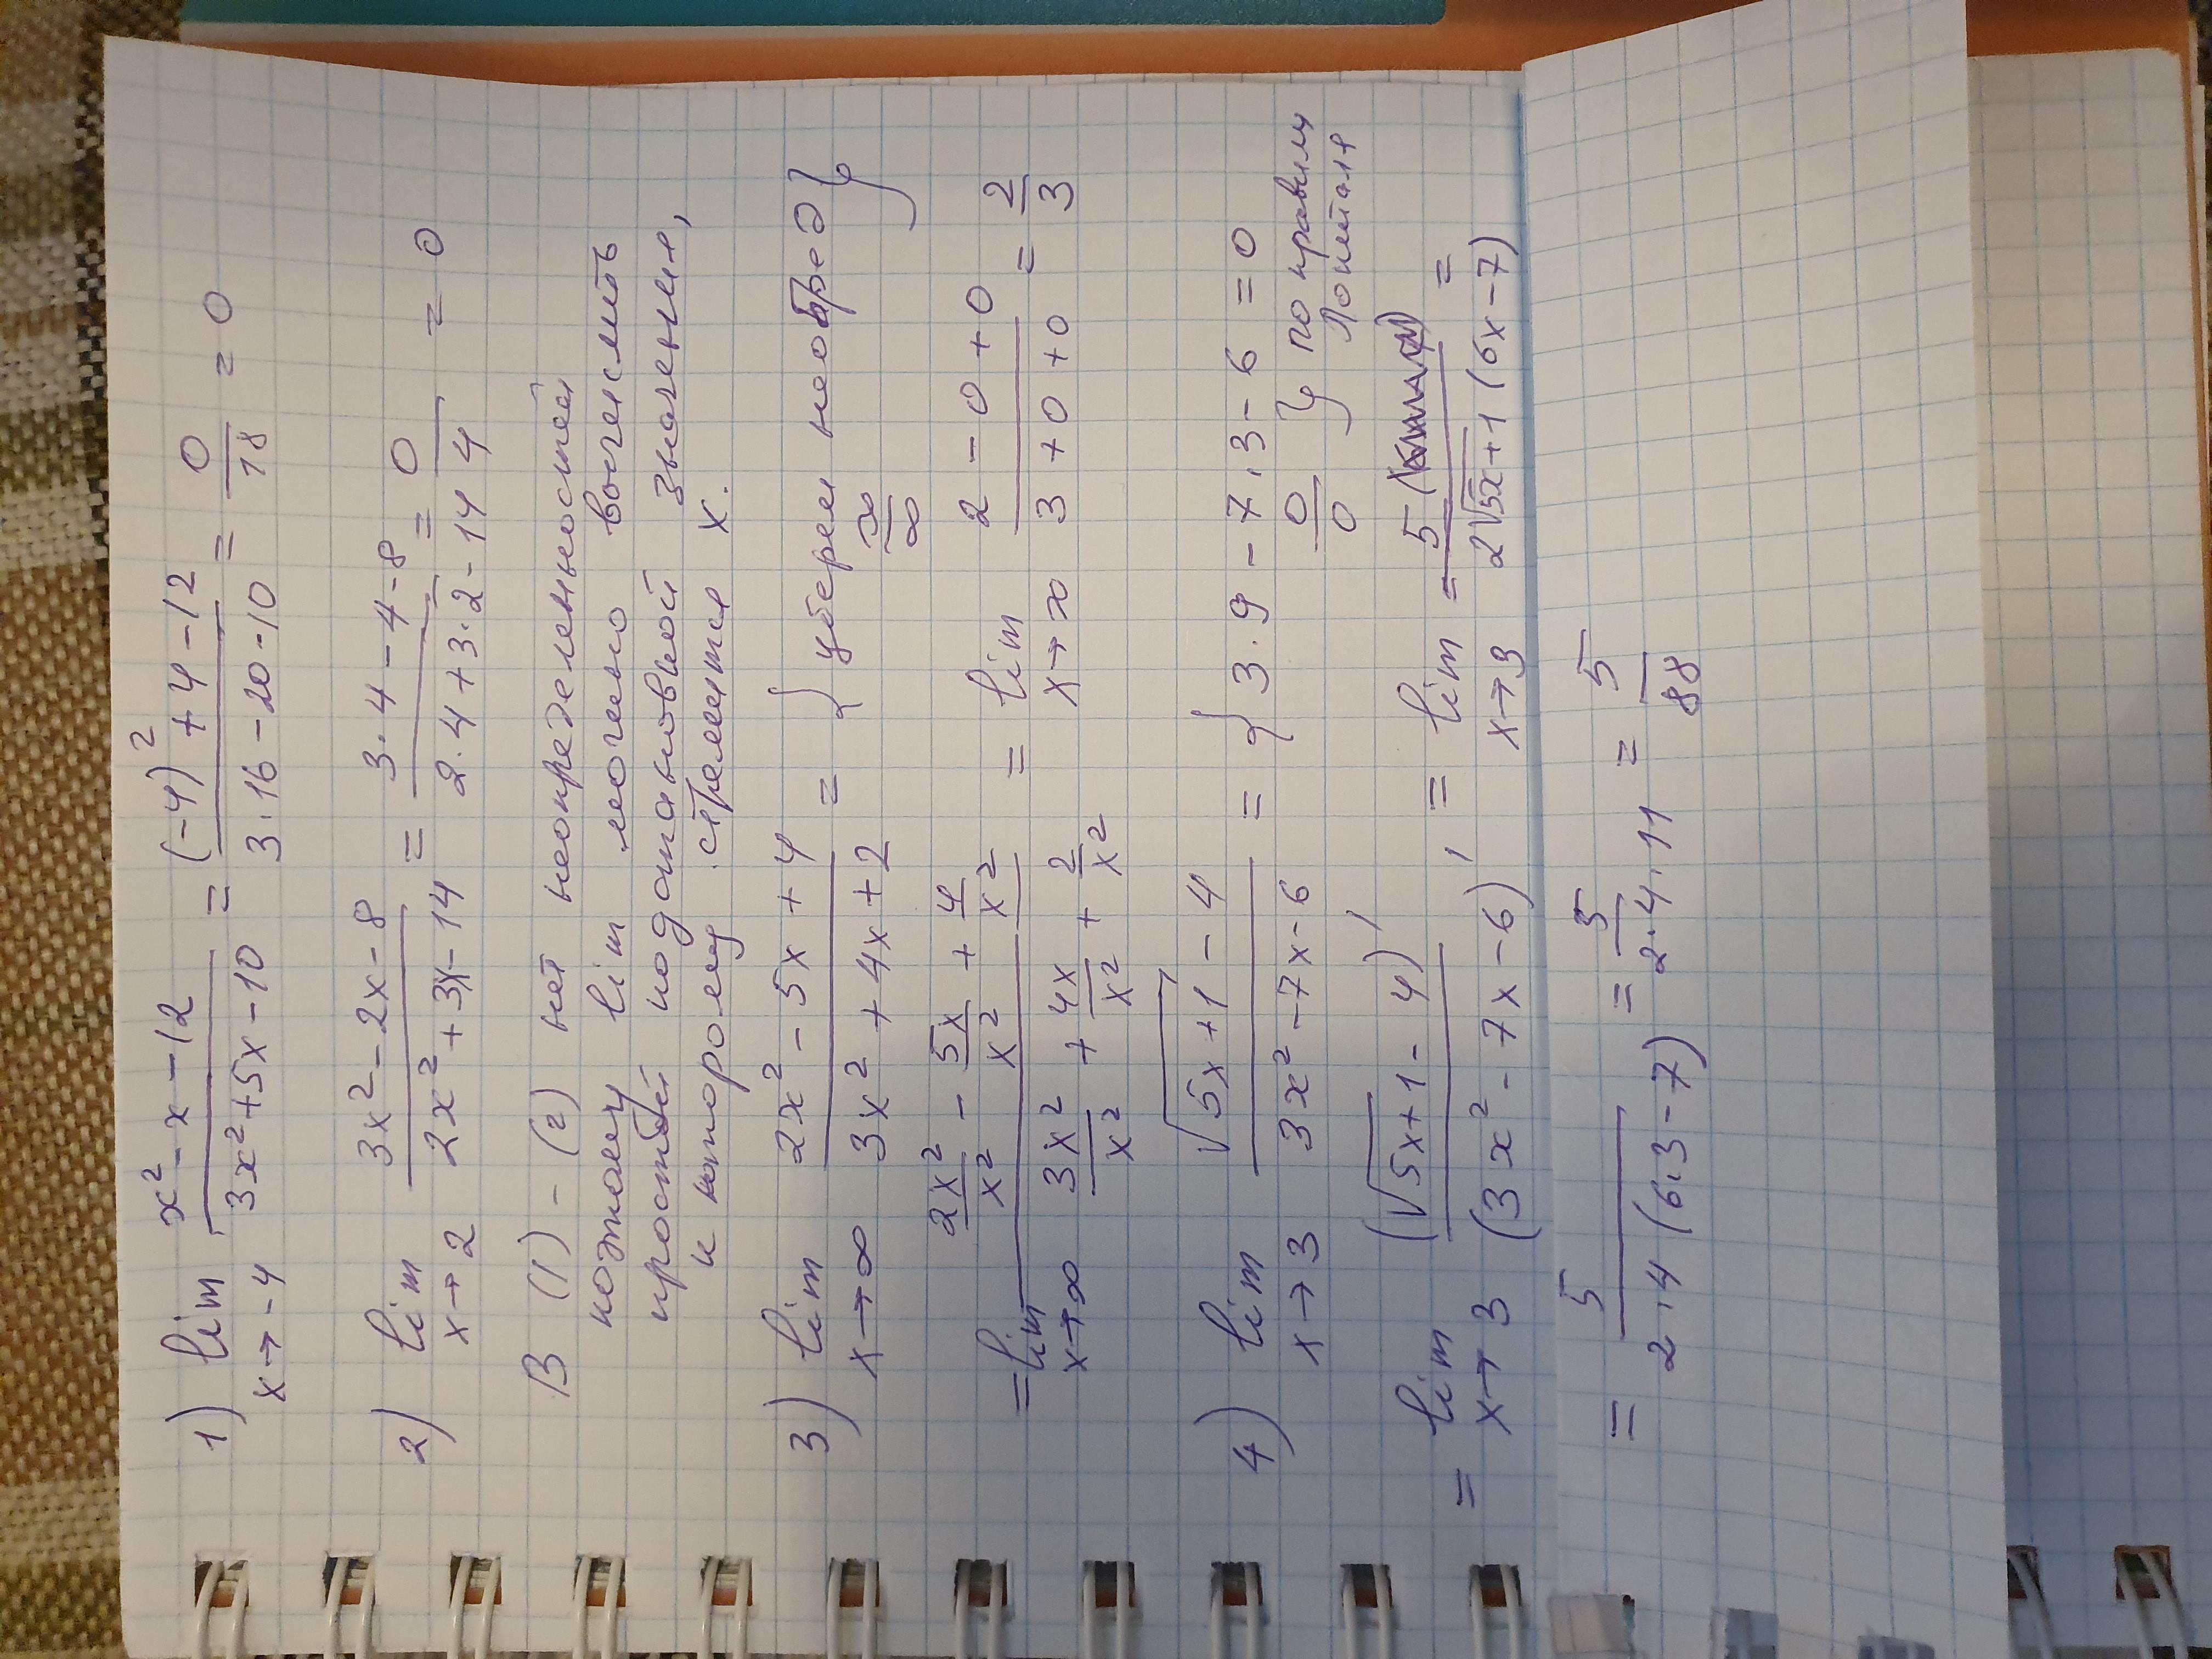 1) lim x→-4 (x² - x - 12)/(3x² + 5x - 10) = ((-4)² + 4 - 12)/(3·16 - 20 - 10) = 0/18 = 0
2) lim x→2 (3x² - 2x - 8)/(2x² + 3x - 14) = (3·4 - 4 - 8)/(2·4 + 3·2 - 14) = 0/4 = 0
В (1) - (2) нет неопределенностей
поэтому lim можно вычислить
простой подстановкой значения,
к которому стремится x.
3) lim x→∞ (2x² - 5x + 4)/(3x² + 4x + 2) = { уберем неопред ∞/∞ }
= lim x→∞ (2x²/x² - 5x/x² + 4/x²)/(3x²/x² + 4x/x² + 2/x²) = lim x→∞ (2 - 0 + 0)/(3 + 0 + 0) = 2/3
4) lim x→3 (√(5x+1) - 4)/(3x² - 7x - 6) = { 3·9 - 7·3 - 6 = 0 0/0 } по правилу Лопиталя
= lim x→3 (√(5x+1) - 4)'/(3x² - 7x - 6)' = lim x→3 = 5/(2√5x+1 (6x - 7)) =
= 5/(2·4 (6·3 - 7)) = 5/(2·4·11) = 5/88